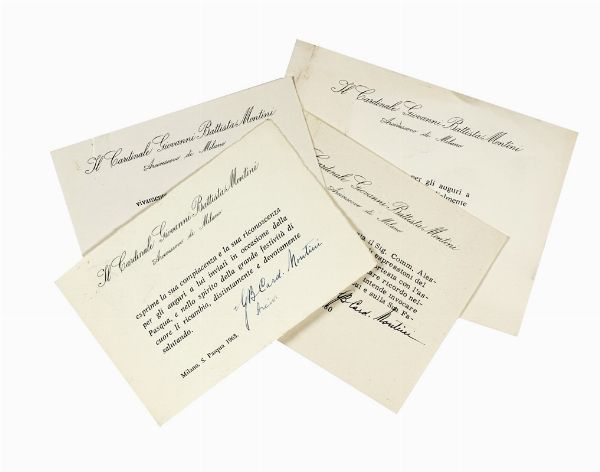 Il Cardinale Giovanni Battista Montini
Arcivescovo di Milano
per gli auguri a
Il Cardinale Giovanni Battista Montini
Arcivescovo di Milano
Il Cardinale Giovanni Battista Montini
Arcivescovo di Milano
esprime la sua compiacenza e la sua riconoscenza
per gli auguri a lui inviati in occasione della
Pasqua, e nello spirito della grande festività di
cuore li ricambio, distintamente e devotamente
salutando.
+ GB Card. Montini
Milano, S. Pasqua 1963.
Cardinale Giovanni Battista Montini
Arcivescovo di Milano
il Sig. Comm. Ales-
espressioni del
cortesia con l'as-
ricordo nel-
intende invocare
ui e sulla Sig Fa-
+ GB Card. Montini
60